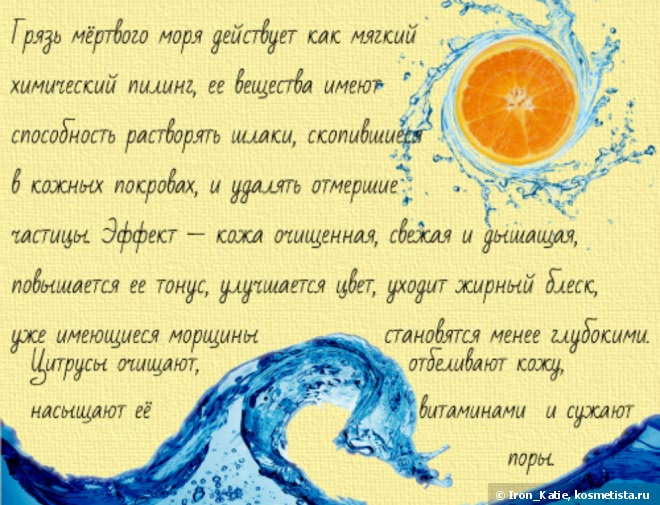 Грязь мёртвого моря действует как мягкий
химический пилинг, ее вещества имеют
способность растворять шлаки, скопившиеся
в кожных покровах, и удалять отмершие
частицы. Эффект — кожа очищенная, свежая и дышащая,
повышается ее тонус, улучшается цвет, уходит жирный блеск,
уже имеющиеся морщины становятся менее глубокими.
Цитрусы очищают, отбеливают кожу,
насыщают её витаминами и сужают
поры.
© Iron_Katie, kosmetista.ru